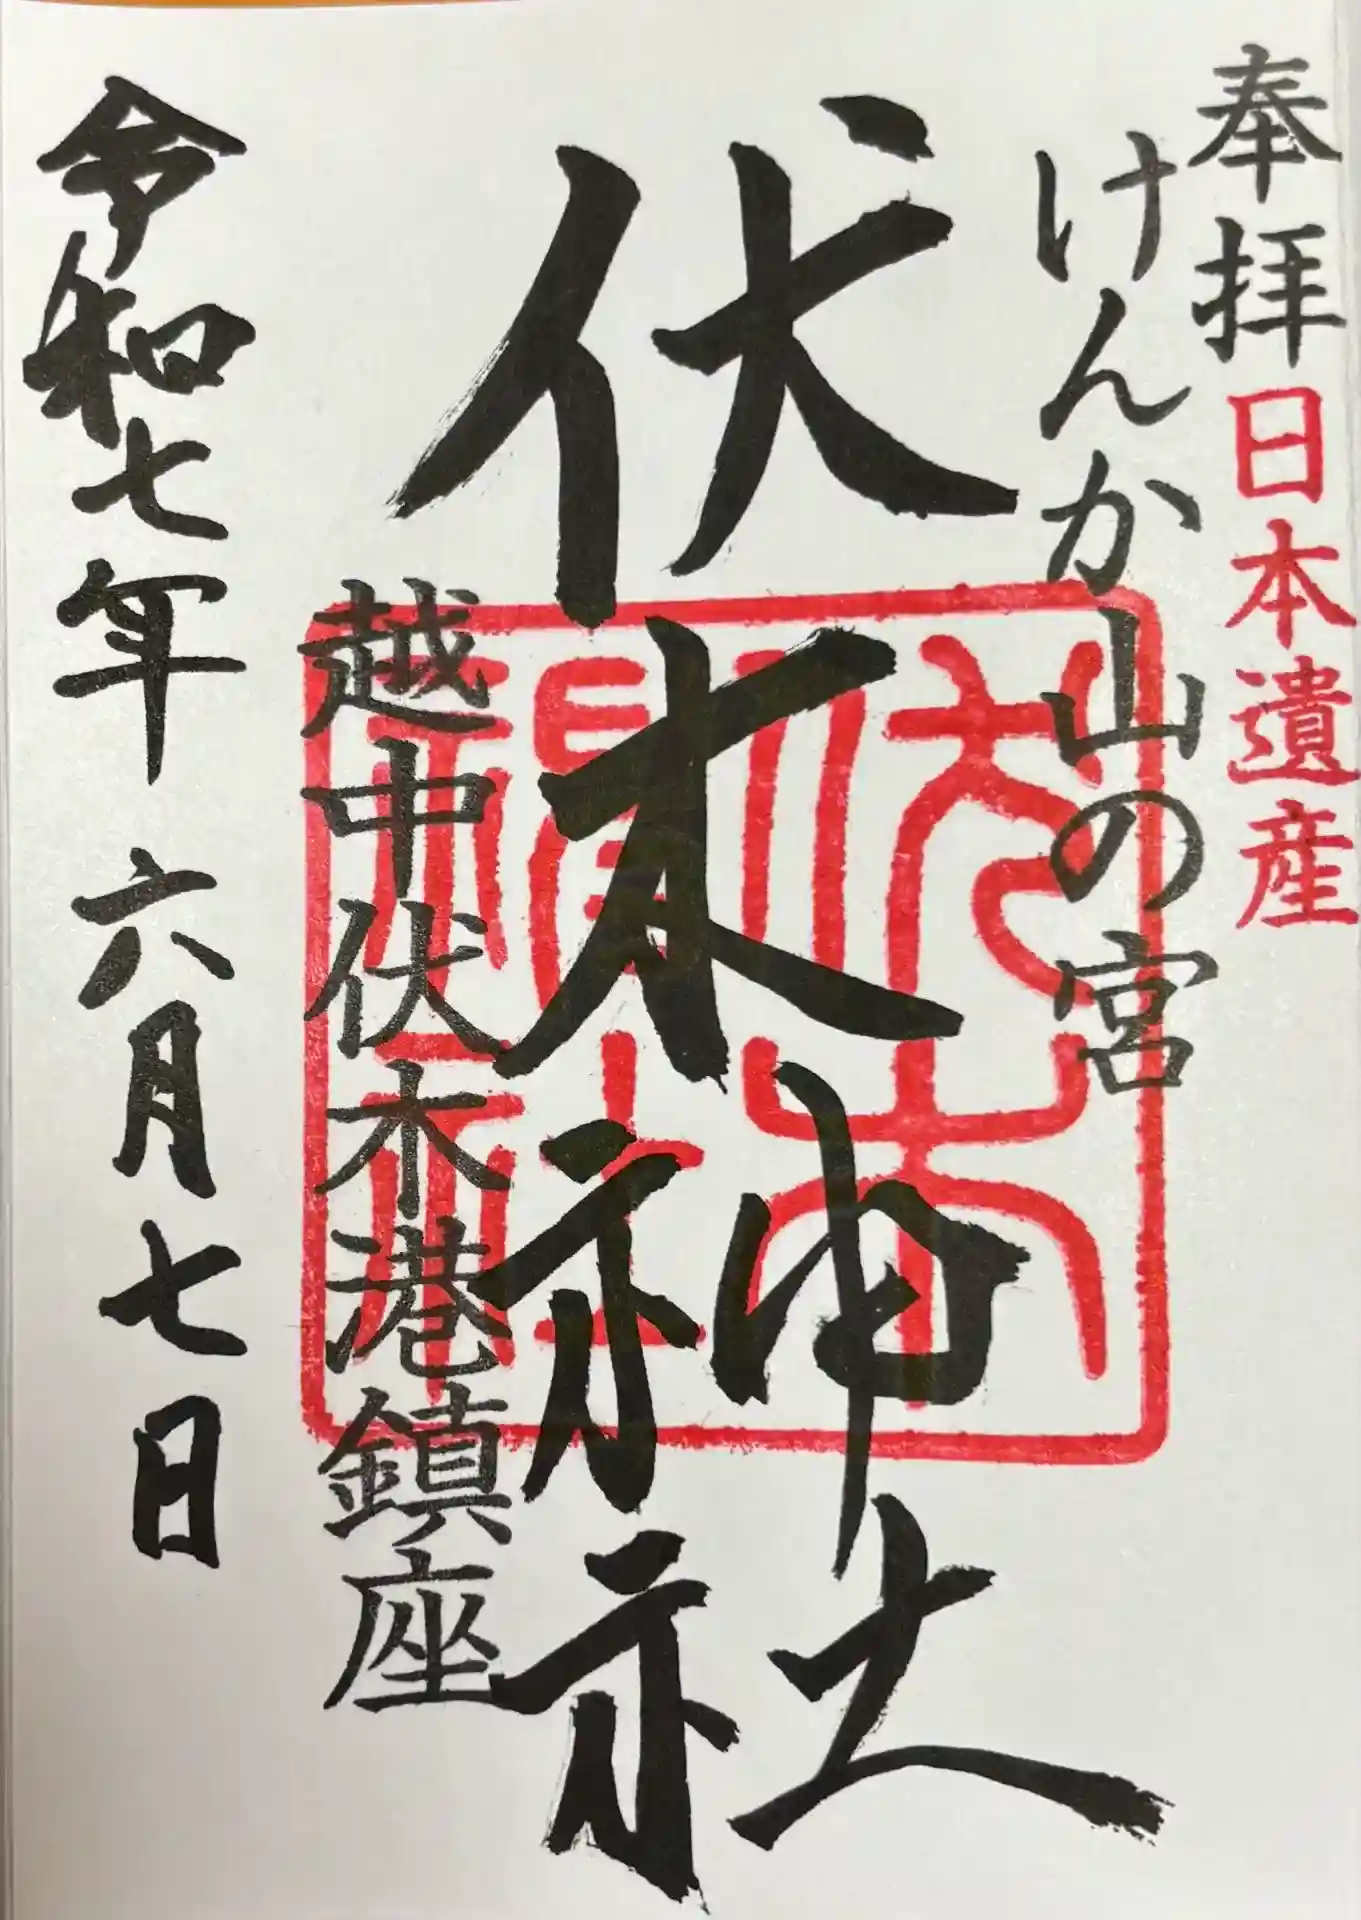 奉拝 日本遺産
けんか山の宮
伏木神社
伏木神社
越中伏木港鎮座
令和七年 六月 七日